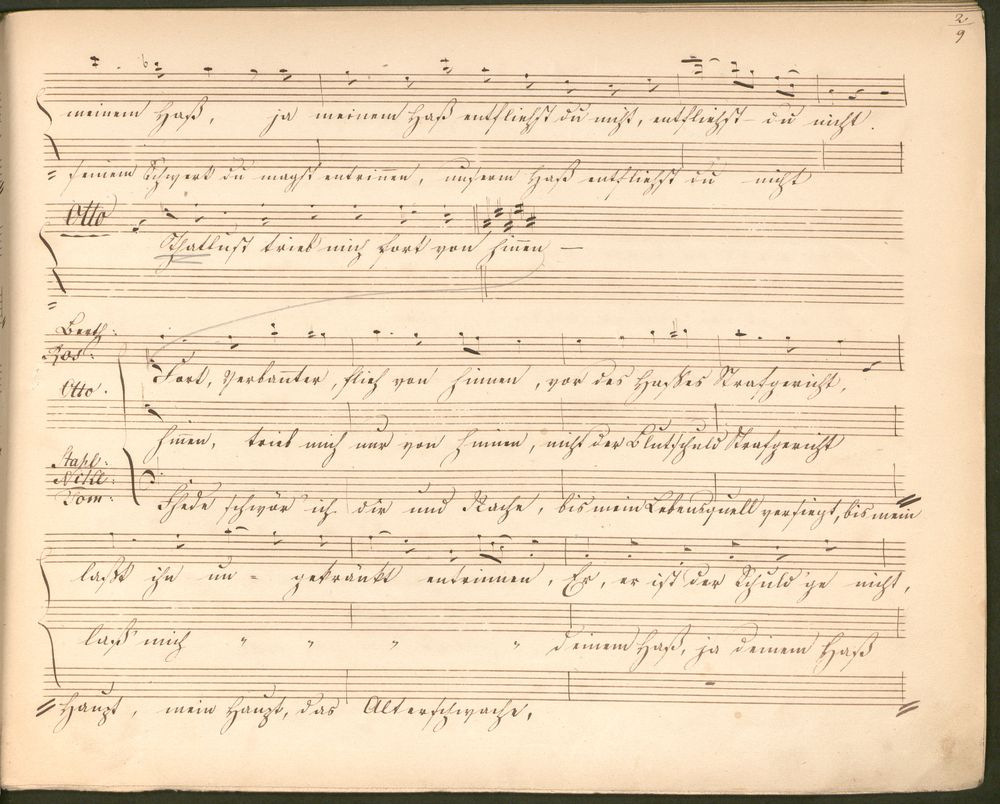 2/9
meinem Haß, ja meinem Haß entfliehst du nicht, entfliehst du nicht.
seinem Schwert du magst entrinnen, unserm Haß entfliehst du nicht
Otto
Thatlust trieb mich fort von hinnen —
Berth:
Ros:
Fort, Verbannter, flieh von hinnen, vor des Hasses Strafgericht,
Otto.
hinen, trieb mich nur von hinnen, nicht der Blutschuld Strafgericht
Stahl:
Nikl:
Tom:
Fhede schwör' ich dir und Rache, bis mein Lebensquell versiegt, bis mein
laßt ihn un- gekränkt entrinnen, Er, er ist der Schuld'ge nicht,
laß' mich " " " " deinem Haß, ja deinem Haß
Haupt, mein Haupt, das Alterschwache,